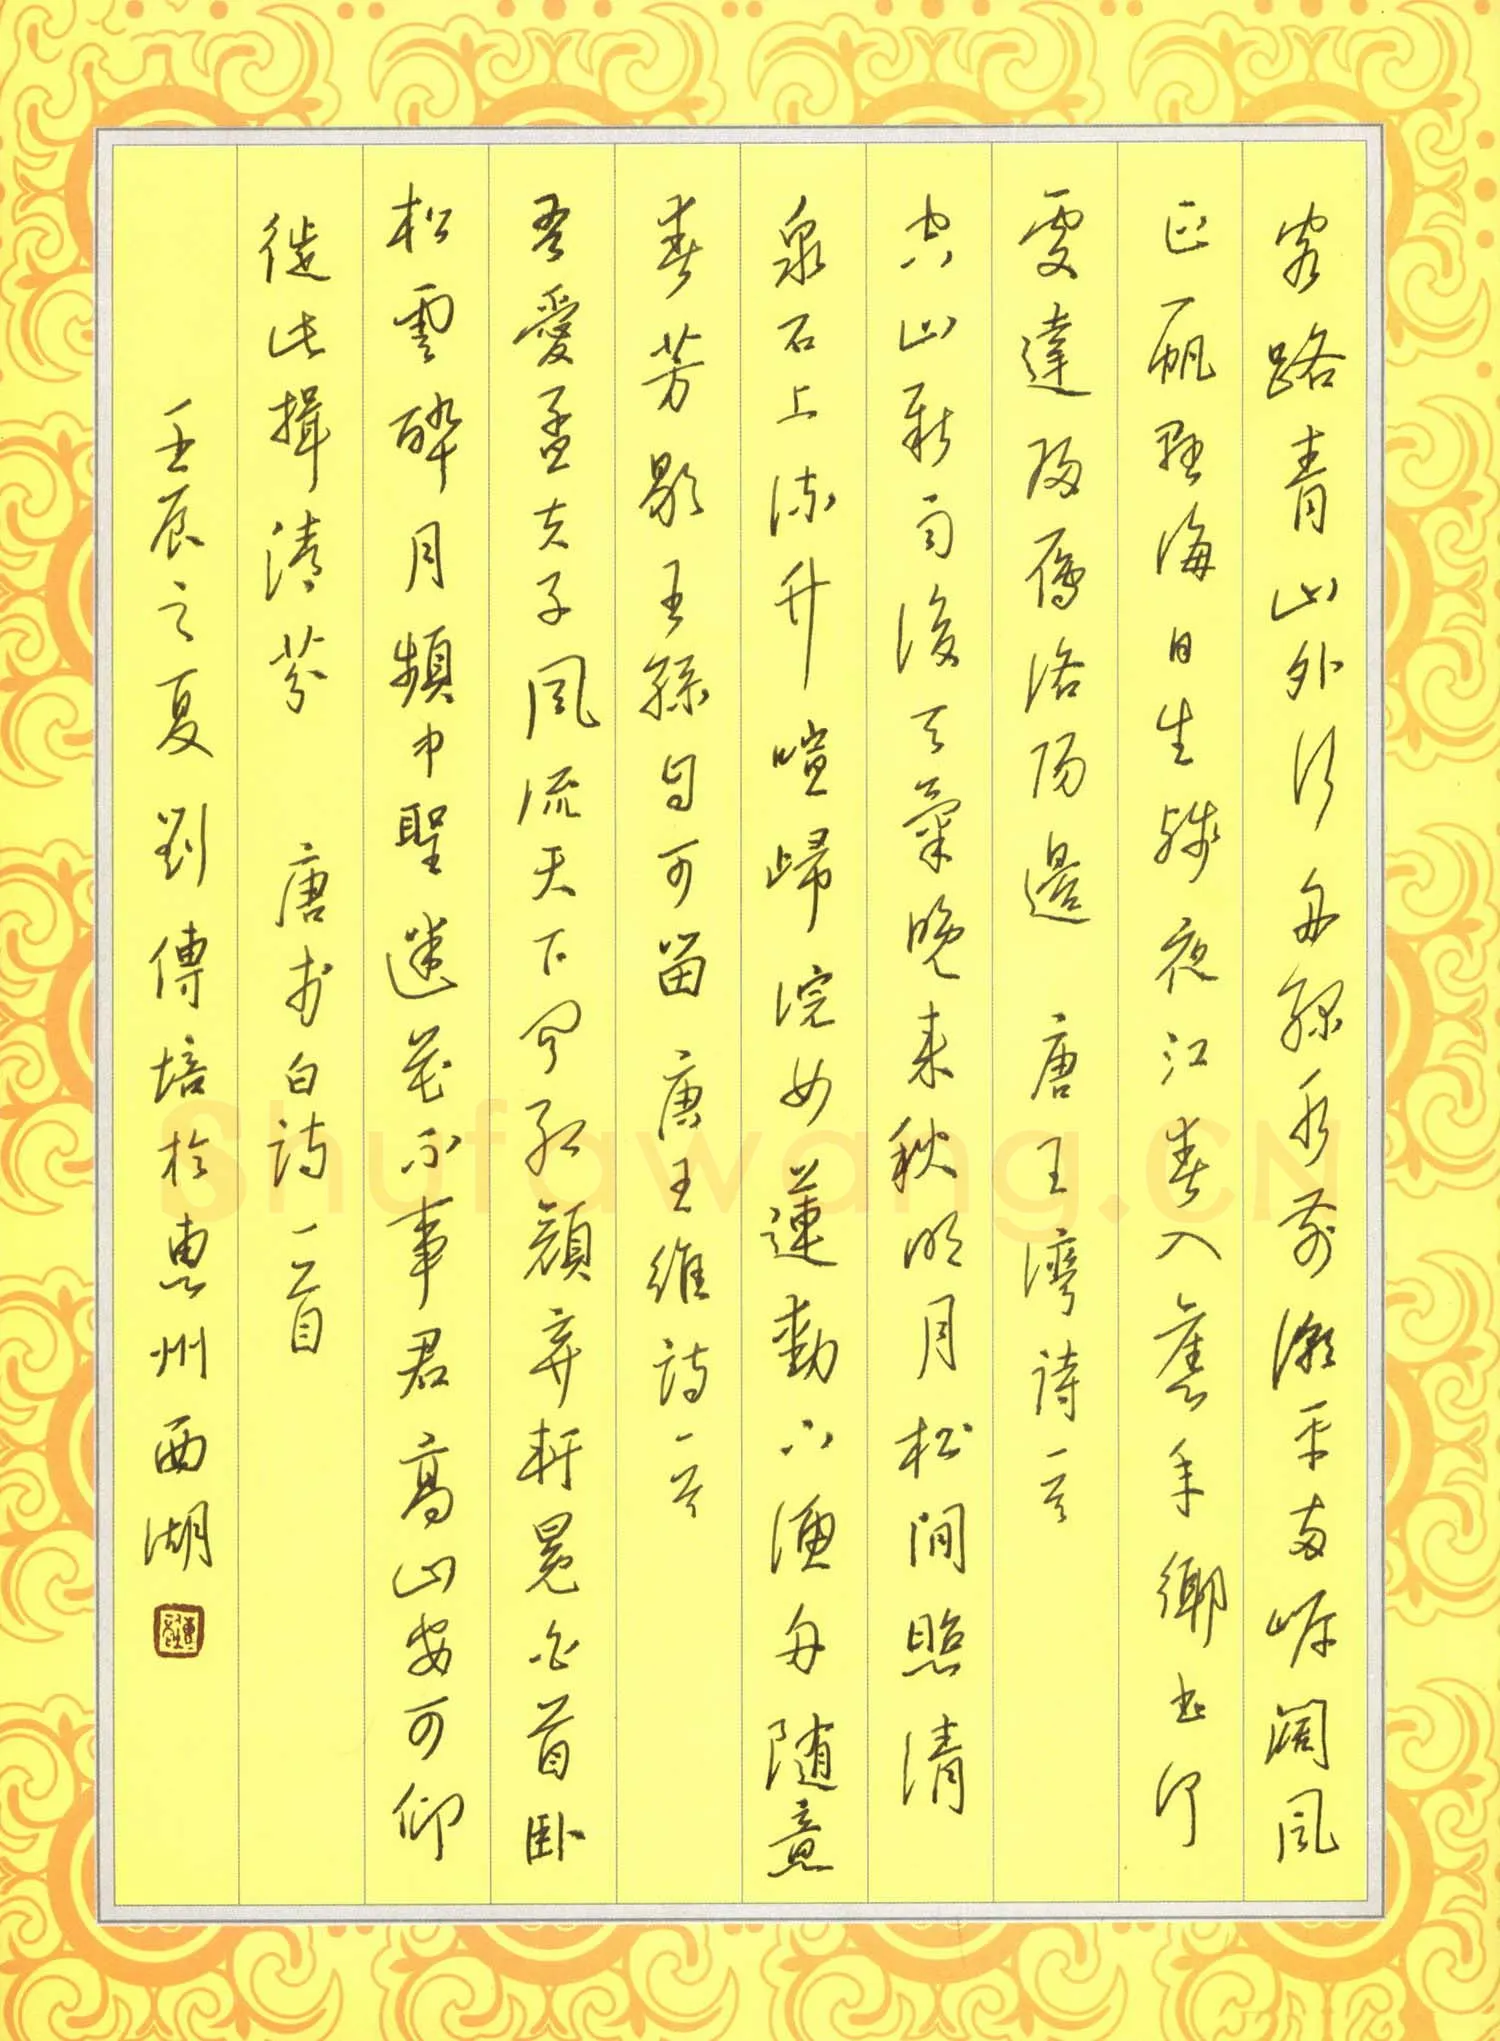 客路青山外行舟綠水前潮平两岸阔風
正一帆懸海日生殘夜江春入舊年鄉書何
處達歸雁洛陽邊 唐王灣诗一首
空山新雨後天氣晚来秋明月松間照清
泉石上流竹喧歸浣女蓮動下漁舟随意
春芳歇王孫自可留 唐王維诗一首
吾愛孟夫子風流天下聞紅顔弃軒冕白首卧
松雲醉月頻中聖迷花不事君高山安可仰
徒此揖清芬 唐李白诗一首
壬辰之夏劉傳培於惠州西湖
Shufawang.CN